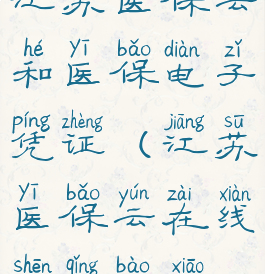 江苏医保云
hé yī bǎo diàn zǐ
和医保电子
píng zhèng jiāng sū
凭证（江苏
yī bǎo yún zài xiàn
医保云在线
shēn qǐng bào xiāo